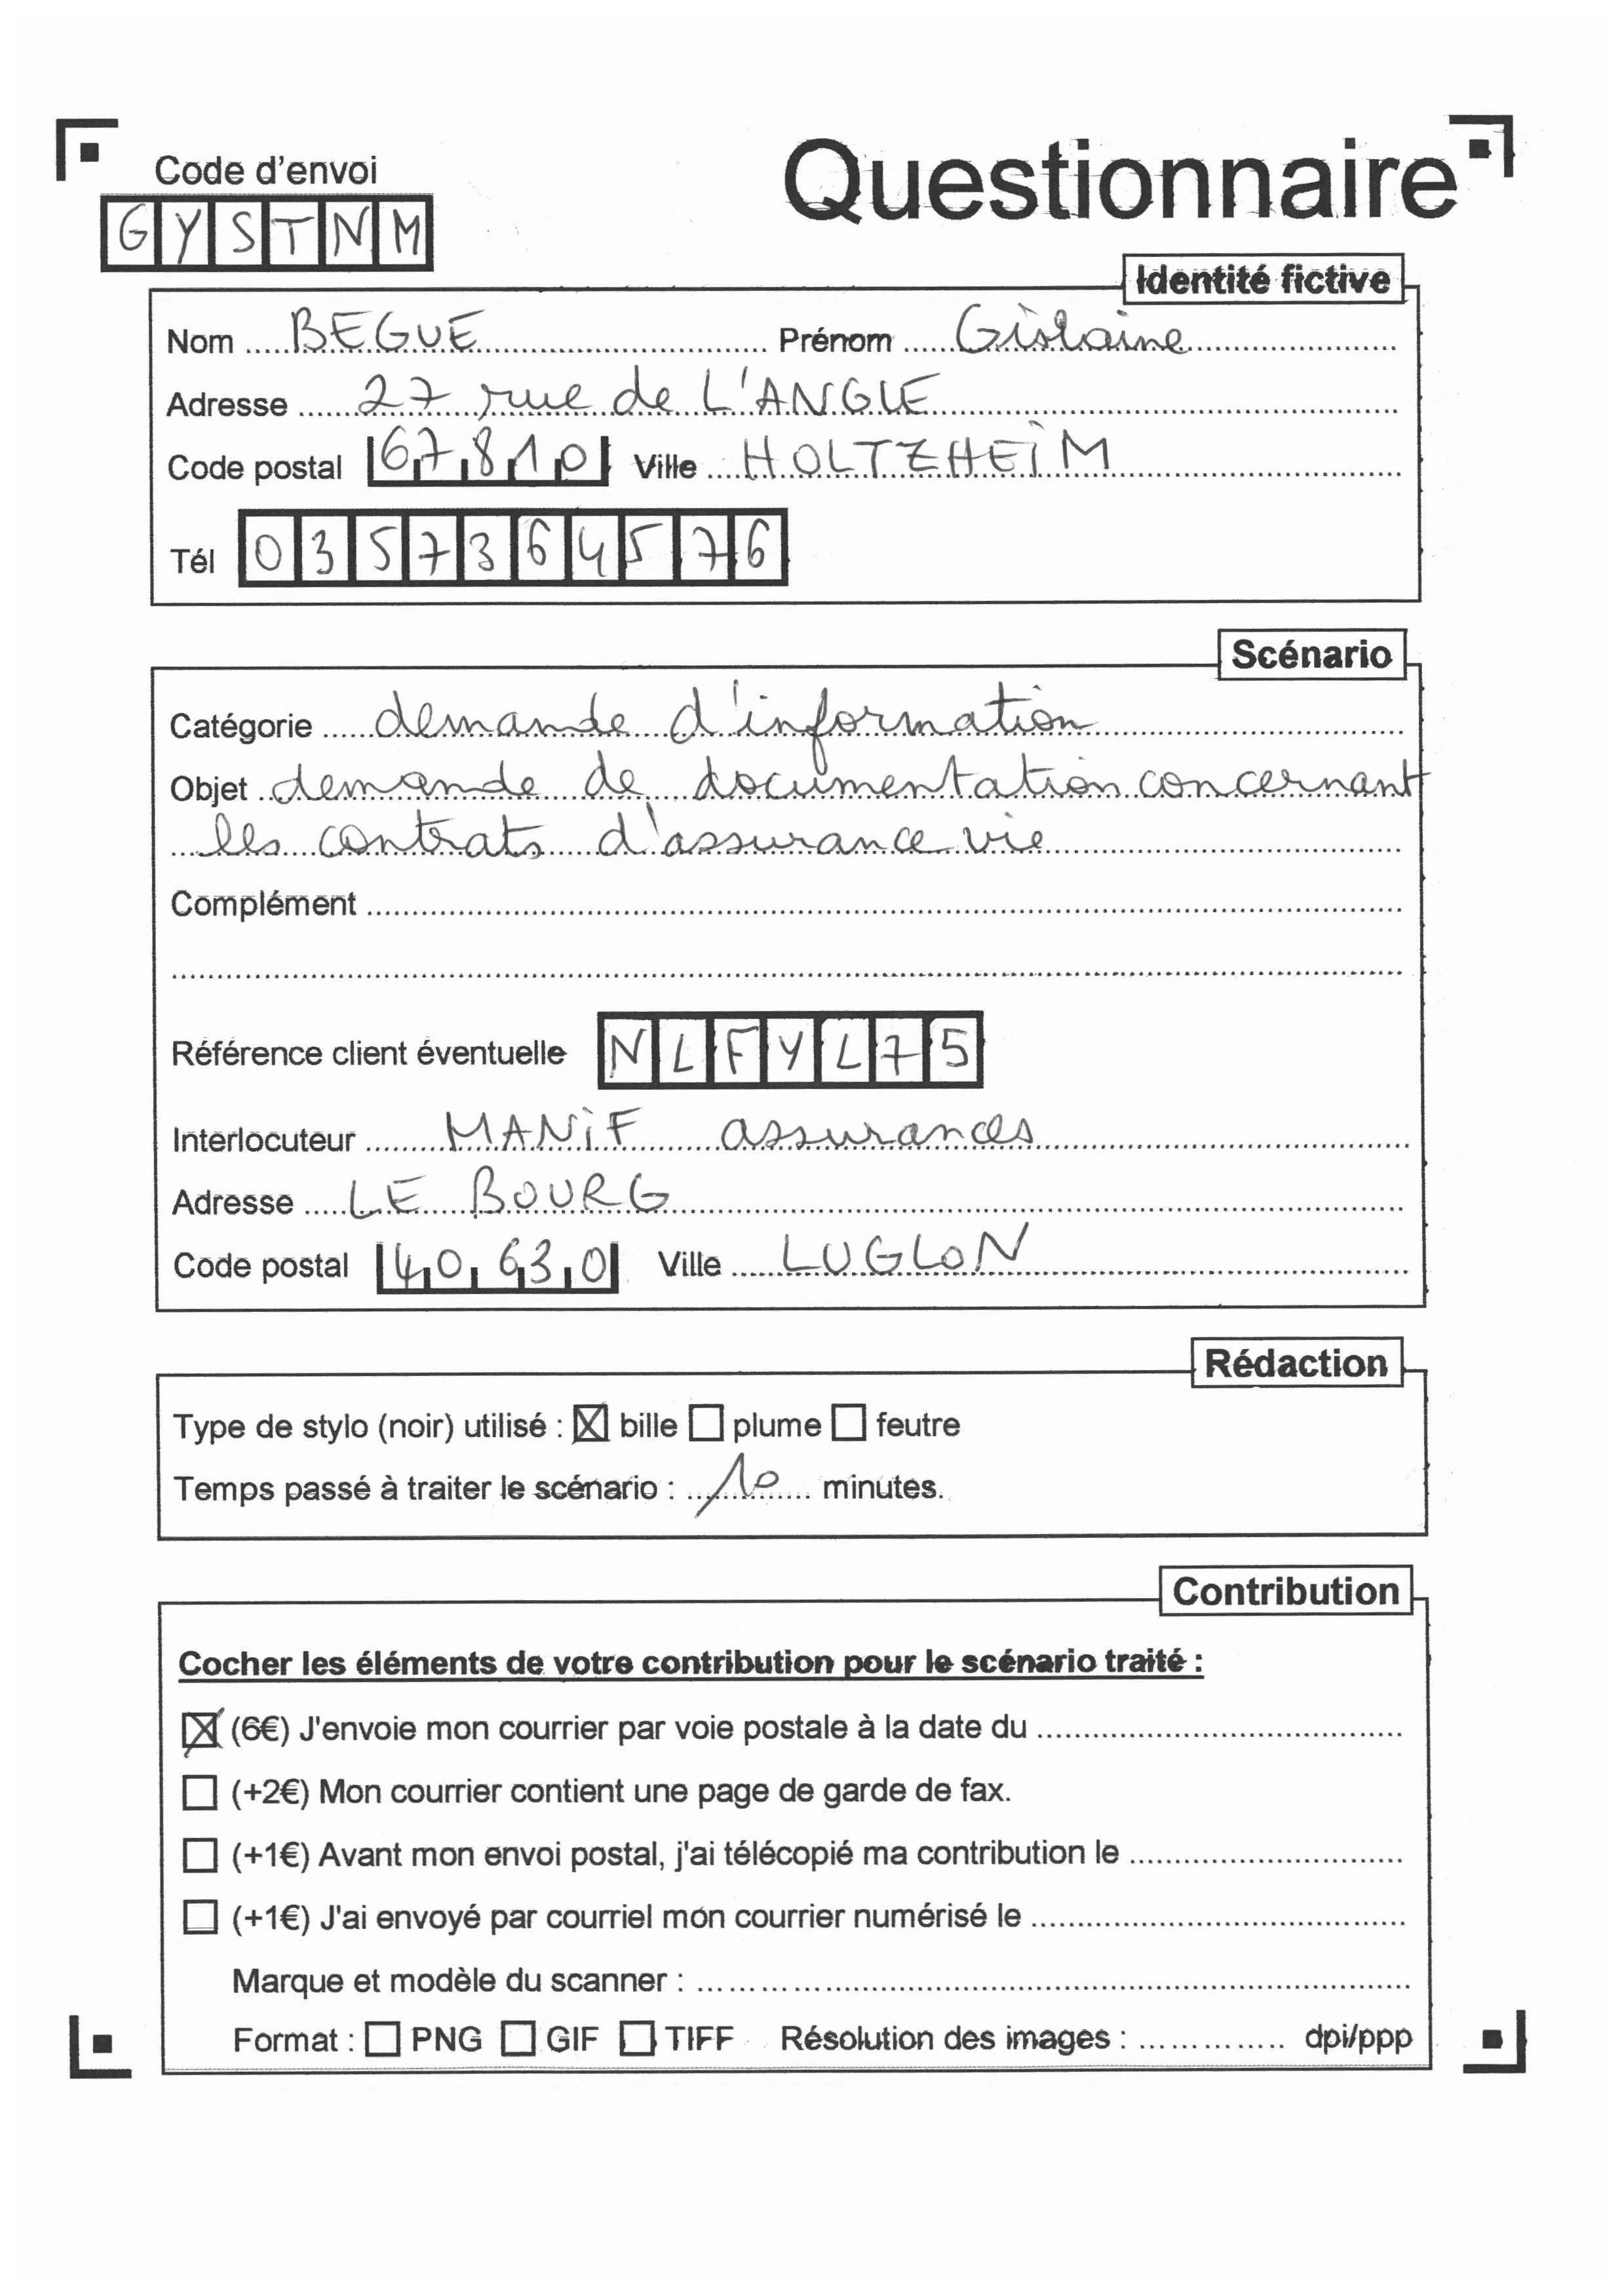 Code d'envoi
Questionnaire
GYSTNM
Identité fictive
Nom ..... BEGUE ..... Prénom ..... Gislaine .....
Adresse ..... 27 rue de L'ANGLE .....
Code postal 67810 Ville ..... HOLTZHEIM .....
Tél 0357364576
Scénario
Catégorie ..... demande d'information .....
Objet ..... demande de documentation concernant
..... les contrats d'assurance vie .....
Complément .....
Référence client éventuelle NLFYL75
Interlocuteur ..... MANIF assurances .....
Adresse ..... LE BOURG .....
Code postal 40630 Ville ..... LUGLON .....
Rédaction
Type de stylo (noir) utilisé : ☒ bille ☐ plume ☐ feutre
Temps passé à traiter le scénario : ..... 10 ..... minutes.
Contribution
Cocher les éléments de votre contribution pour le scénario traité :
☒ (6€) J'envoie mon courrier par voie postale à la date du .....
☐ (+2€) Mon courrier contient une page de garde de fax.
☐ (+1€) Avant mon envoi postal, j'ai télécopié ma contribution le .....
☐ (+1€) J'ai envoyé par courriel mon courrier numérisé le .....
Marque et modèle du scanner : .....
Format : ☐ PNG ☐ GIF ☐ TIFF Résolution des images : ..... dpi/ppp